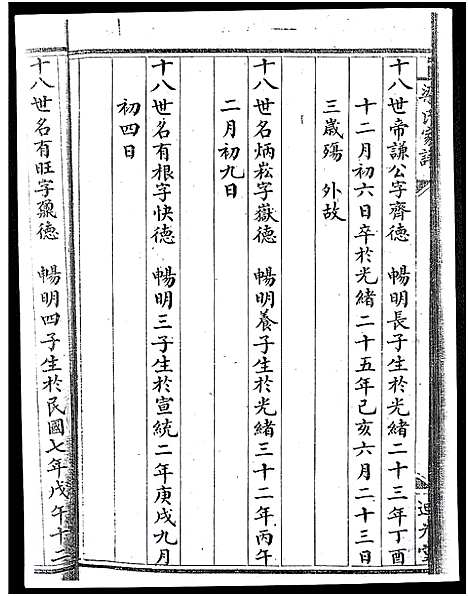 梁氏家譜
十八世帝謙公字齊德 暢明長子生於光緒二十三年丁酉
十二月初六日卒於光緒二十五年己亥六月二十三日
三歲殤 外故
十八世名炳崧字嶽德 暢明養子生於光緒三十二年丙午
二月初九日
十八世名有根字快德 暢明三子生於宣統二年庚戌九月
初四日
十八世名有旺字德 暢明四子生於民國七年戊午十二